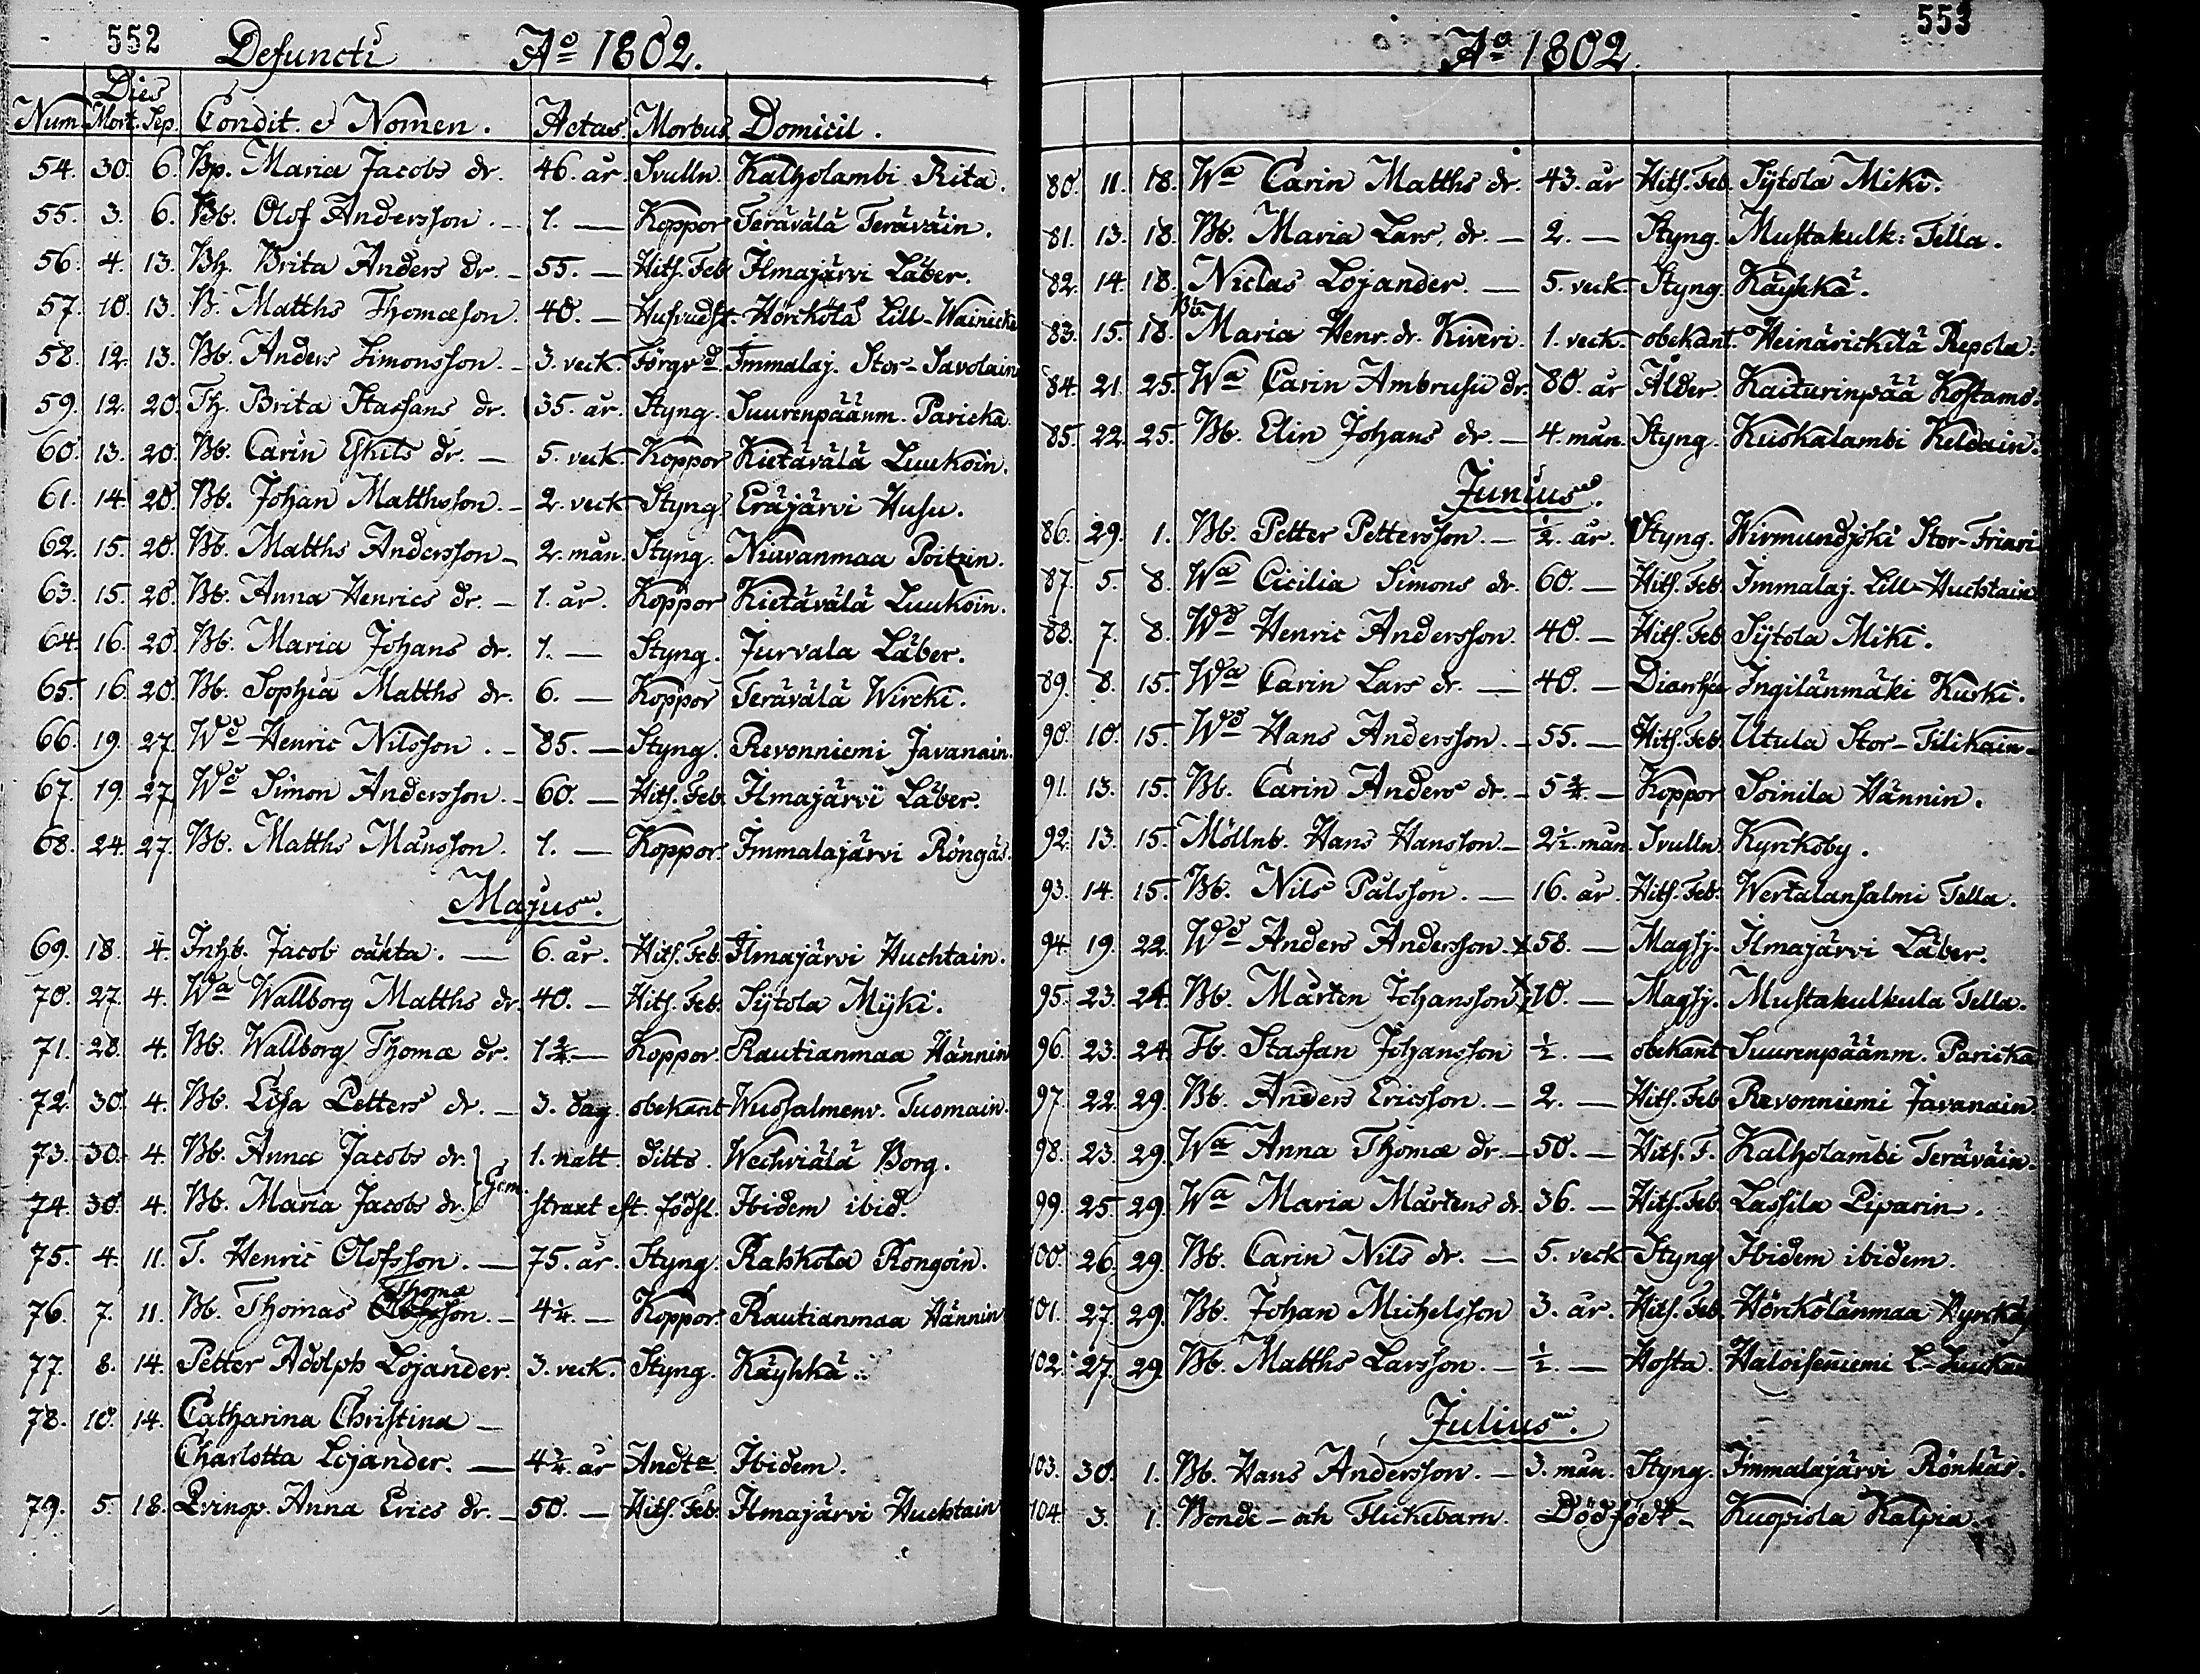 552
Defuncti Ao 1802.
Dies
Num. Mort. Sep. Condit. et Nomen. Aetas. Morbus Domicil.
54. 30. 6. Bp. Maria Jacobs dr. 46. år. Svulln. Kalholambi Rita.
55. 3. 6. Bb. Olof Andersson. - 1. — Koppor Terävälä Teräväin.
56. 4. 13. Bh. Brita Anders dr. - 55. — Hits. Feb. Ilmajärvi Läber.
57. 10. 13. B. Matths Thomæson. 40. — Hufvudst. Hörckölä Lill-Wainicka
58. 12. 13. Bb. Anders Simonsson. - 3. veck. Förgvd. Immalaj. Stor-Savolain
59. 12. 20. Th. Brita Staffans dr. 35. år. Styng. Suurenpäänm. Paricka
60. 13. 20. Bb. Carin Eskils dr. — 5. veck. Koppor Kietävälä Luukoin.
61. 14. 20. Bb. Johan Matthsson. - 2. veck Styng Eräjärvi Husu.
62. 15. 20. Bb. Matths Andersson - 2. mån. Styng. Niuvanmaa Poitzin.
63. 15. 20. Bb. Anna Henrics dr. — 1. år. Koppor Kietävälä Luukoin.
64. 16. 20. Bb. Maria Johans dr. 1. — Styng. Jurvala Läber.
65. 16. 20. Bb. Sophia Matths dr. 6. — Koppor Terävälä Wircki.
66. 19. 27. Wd Henric Nilsson. - 85. — Styng. Revonniemi Javanain.
67. 19. 27. Wd Simon Andersson. - 60. — Hits. Feb. Ilmajärvi Läber.
68. 24. 27. Bb. Matths Månsson. 1. — Koppor. Immalajärvi Röngäs.
Majus.
69. 18. 4. Inhb. Jacob oäkta. — 6. år. Hits. Feb. Ilmajärvi Huchtain.
70. 27. 4. Wa Wallborg Matths dr. 40. — Hits. Feb. Sÿtola Mÿki.
71. 28. 4. Bb. Wallborg Thomæ dr. 1 3/4. — Koppor. Rautianmaa Hännin
72. 30. 4. Bb. Lisa Petters dr. — 3. dag. obekant Wuosalmenv. Tuomain.
73. 30. 4. Bb. Anna Jacobs dr. } Gem. 1. natt. ditto. Wechviälä Borg.
74. 30. 4. Bb. Maria Jacobs dr. straxt eft. födsl. Ibidem ibid.
75. 4. 11. T. Henric Olofsson. — 75. år. Styng. Rahkola Rongoin.
Thomæ
76. 7. 11. Bb. Thomas son. - 4 1/4. — Koppor. Rautianmaa Hännin
77. 8. 14. Petter Adolph Lojander. 3. veck. Styng. Käyhkä.
78. 10. 14. Catharina Christina —
Charlotta Lojander. — 4 3/4. år Andta. Ibidem.
79. 5. 18. Anna Erics dr. - 50. — Hits. Feb. Ilmajärvi Huchtain
553
Ao 1802.
80. 11. 18. Wa Carin Matths dr. 43. år Hits. Feb. Sÿtola Miki.
81. 13. 18. Bb. Maria Lars. dr. — 2. — Styng. Mustakulk: Tella.
82. 14. 18. Niclas Lojander. — 5. veck Styng. Käyhkä.
83. 15. 18. Bb. Maria Henr. dr. Kiveri. 1. veck. obekant. Heinärickilä Repola.
84. 21. 25. Wa Carin Ambrusii dr. 80. år Ålder. Kaiturinpää Kostamo.
85. 22. 25. Bb. Elin Johans dr. — 4. mån. Styng. Kuoskalambi Keldain.
Junius.
86. 29. 1. Bb. Petter Pettersson. — 1/2. år. Styng. Wirmundjoki Stor-Friari
87. 5. 8. Wa Cicilia Simons dr. 60. — Hits. Feb. Immalaj. Lill-Huchtain
88. 7. 8. Wd Henric Andersson. 40. — Hits. Feb. Sÿtola Miki.
89. 8. 15. Wa Carin Lars dr. — 40. — Diarrhée Ingilänmäki Kurki.
90. 10. 15. Wd Hans Andersson. - 55. — Hits. Feb. Utula Stor-Tilikain
91. 13. 15. Bb. Carin Anders dr. - 5 3/4. — Koppor Soinila Hännin.
92. 13. 15. Möllnb. Hans Hansson. — 2 1/2. mån. Svulln. Kyrckoby.
93. 14. 15. Bb. Nils Pålsson. — 16. år. Hits. Feb. Wertalansalmi Tella.
94. 19. 22. Wd Anders Andersson. x 58. — Magsj. Ilmajärvi Läber.
95. 23. 24. Bb. Mårten Johansson x 10. — Magsj. Mustakulkula Tella.
96. 23. 24. Tb. Staffan Johansson 1/2. — obekant Suurenpäänm. Paricka
97. 22. 29. Bb. Anders Ericsson. — 2. — Hits. Feb Revonniemi Javanain
98. 23. 29. Wa Anna Thomæ dr. — 50. — Hits. F. Kalholambi Teräväin.
99. 25. 29. Wa Maria Mårtens dr. 36. — Hits. Feb. Lassila Piparin.
100. 26. 29. Bb. Carin Nils dr. — 5. veck Styng Ibidem ibidem.
101. 27. 29. Bb. Johan Michelsson 3. år. Hits. Feb. Hörckölänmaa
102. 27. 29. Bb. Matths Larsson. — 1/2. — Hosta. Haloiseniemi
Julius.
103. 30. 1. Bb. Hans Andersson. — 3. mån. Styng. Immalajärvi Rönkäs.
104. 3. 1. Bonde - och Flickebarn. Dödfödt - Kuopiola Kalpia.